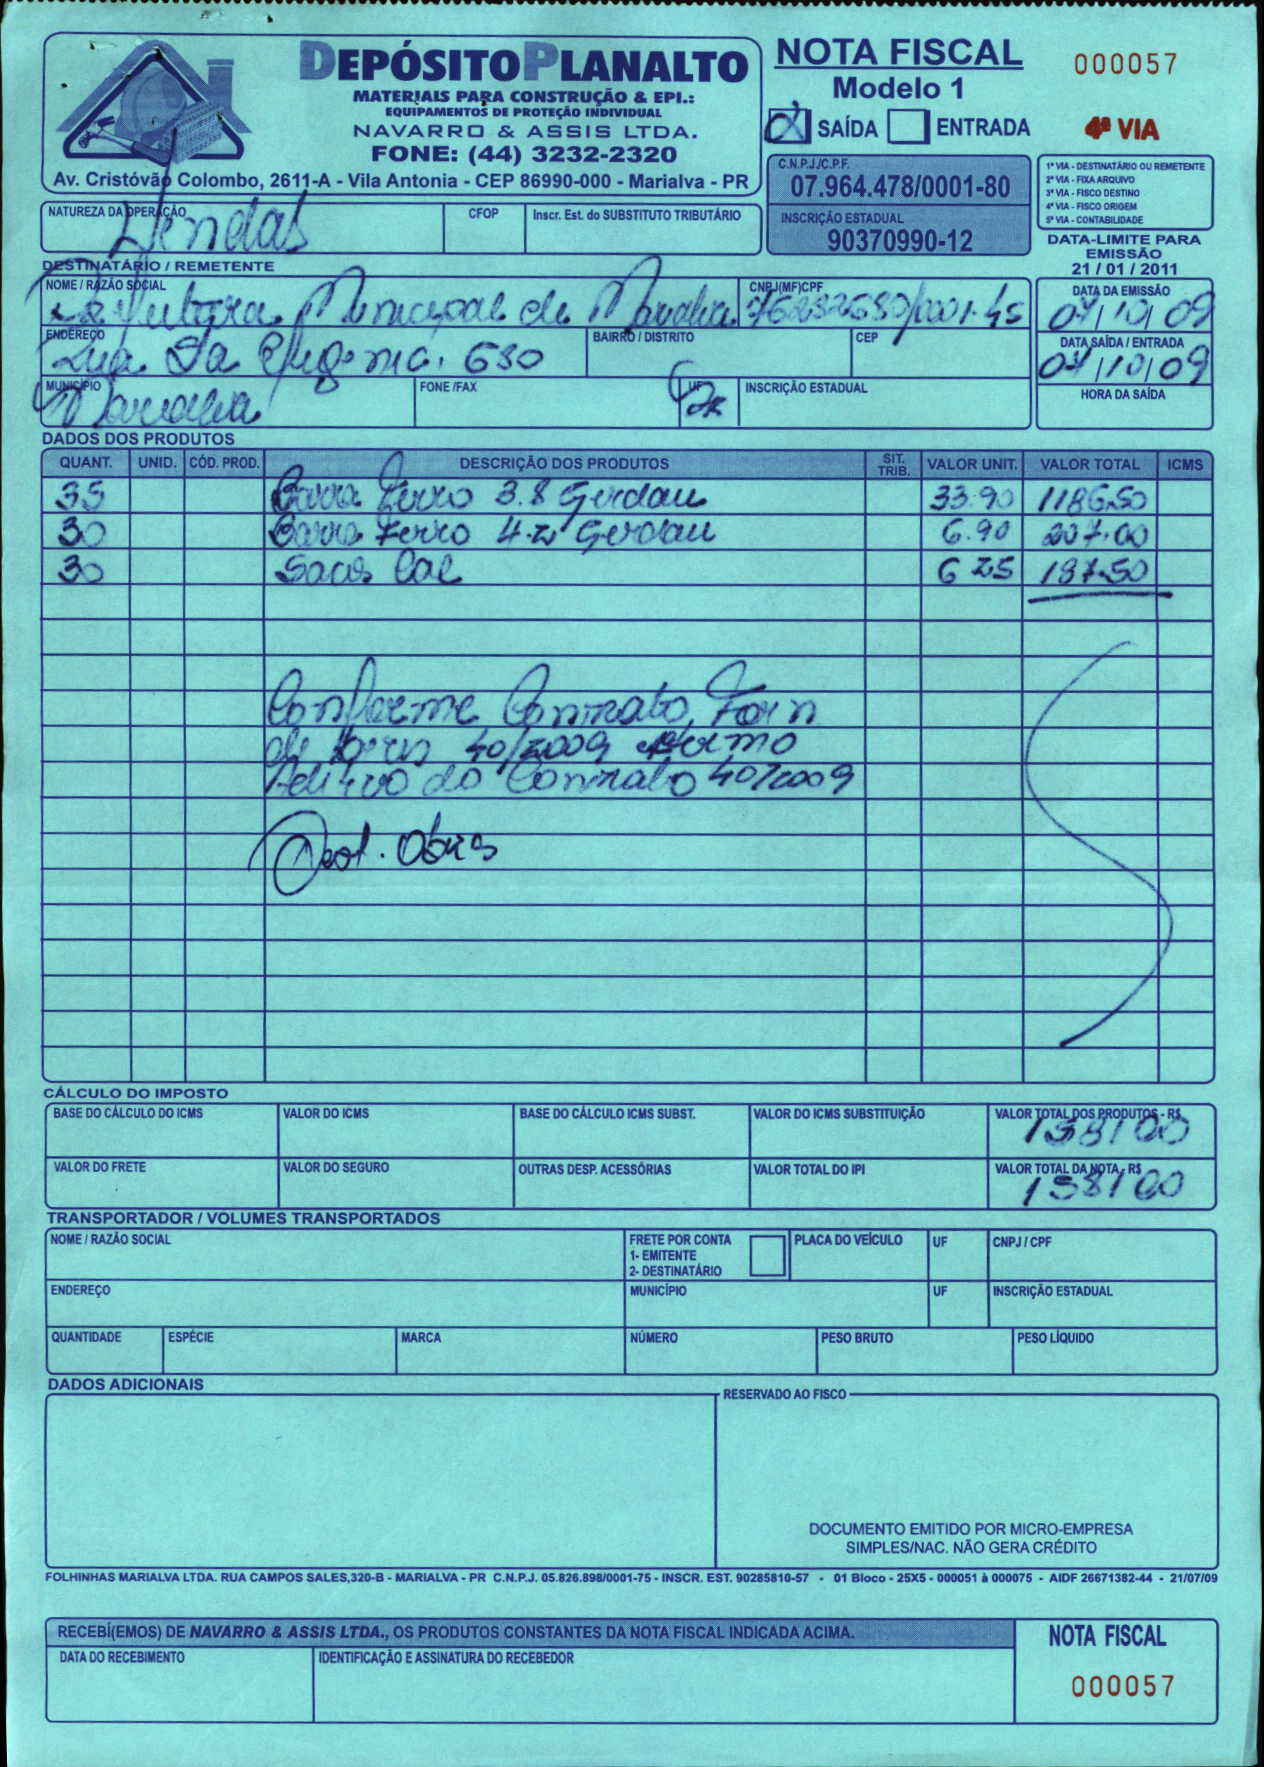 DEPÓSITO PLANALTO
MATERIAIS PARA CONSTRUÇÃO & EPI.:
EQUIPAMENTOS DE PROTEÇÃO INDIVIDUAL
NAVARRO & ASSIS LTDA.
FONE: (44) 3232-2320
Av. Cristóvão Colombo, 2611-A - Vila Antonia - CEP 86990-000 - Marialva - PR
NOTA FISCAL
Modelo 1
X SAÍDA ENTRADA
000057
4ª VIA
C.N.P.J./C.P.F.
07.964.478/0001-80
INSCRIÇÃO ESTADUAL
90370990-12
1ª VIA - DESTINATÁRIO OU REMETENTE
2ª VIA - FIXA ARQUIVO
3ª VIA - FISCO DESTINO
4ª VIA - FISCO ORIGEM
5ª VIA - CONTABILIDADE
DATA-LIMITE PARA
EMISSÃO
21 / 01 / 2011
NATUREZA DA OPERAÇÃO CFOP Inscr. Est. do SUBSTITUTO TRIBUTÁRIO
Vendas
DESTINATÁRIO / REMETENTE
NOME / RAZÃO SOCIAL CNPJ(MF)CPF DATA DA EMISSÃO
Prefeitura Municipal de Marialva 76282680/0001-45 07/10/09
ENDEREÇO BAIRRO / DISTRITO CEP DATA SAÍDA / ENTRADA
Rua Sta Efigenia, 680 07/10/09
MUNICÍPIO FONE /FAX UF INSCRIÇÃO ESTADUAL HORA DA SAÍDA
Marialva PR
DADOS DOS PRODUTOS
QUANT. UNID. CÓD. PROD. DESCRIÇÃO DOS PRODUTOS SIT. TRIB. VALOR UNIT. VALOR TOTAL ICMS
35 Barra Ferro 3.8 Gerdau 33.90 1186.50
30 Barra Ferro 4.2 Gerdau 6.90 207.00
30 Sacos Cal 6 25 187.50
Conforme Contrato Forn
de Bens 40/2009 termo
Aditivo do Contrato 40/2009
Obras
CÁLCULO DO IMPOSTO
BASE DO CÁLCULO DO ICMS VALOR DO ICMS BASE DO CÁLCULO ICMS SUBST. VALOR DO ICMS SUBSTITUIÇÃO VALOR TOTAL DOS PRODUTOS - R$
1581 00
VALOR DO FRETE VALOR DO SEGURO OUTRAS DESP. ACESSÓRIAS VALOR TOTAL DO IPI VALOR TOTAL DA NOTA - R$
1581 00
TRANSPORTADOR / VOLUMES TRANSPORTADOS
NOME / RAZÃO SOCIAL FRETE POR CONTA PLACA DO VEÍCULO UF CNPJ / CPF
1- EMITENTE
2- DESTINATÁRIO
ENDEREÇO MUNICÍPIO UF INSCRIÇÃO ESTADUAL
QUANTIDADE ESPÉCIE MARCA NÚMERO PESO BRUTO PESO LÍQUIDO
DADOS ADICIONAIS
RESERVADO AO FISCO
DOCUMENTO EMITIDO POR MICRO-EMPRESA
SIMPLES/NAC. NÃO GERA CRÉDITO
FOLHINHAS MARIALVA LTDA. RUA CAMPOS SALES,320-B - MARIALVA - PR C.N.P.J. 05.826.898/0001-75 - INSCR. EST. 90285810-57 - 01 Bloco - 25X5 - 000051 à 000075 - AIDF 26671382-44 - 21/07/09
RECEBÍ(EMOS) DE NAVARRO & ASSIS LTDA., OS PRODUTOS CONSTANTES DA NOTA FISCAL INDICADA ACIMA.
DATA DO RECEBIMENTO IDENTIFICAÇÃO E ASSINATURA DO RECEBEDOR
NOTA FISCAL
000057